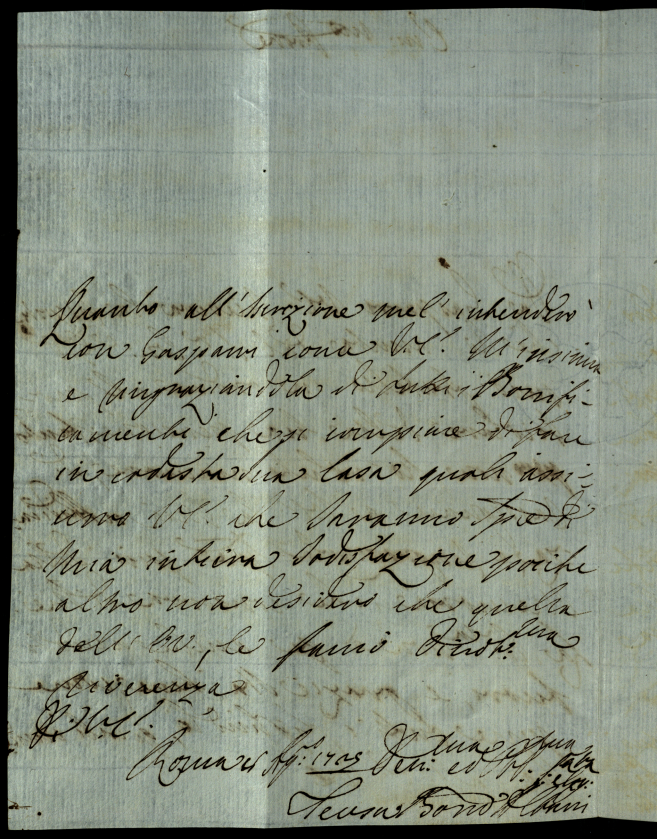 Quanto all'Iscrizione mel'intenderò
con Gaspari come V.S. m'insinua
e ringraziandola di tutti i Bonifi-
camenti che si compiace di fare
in codesta sua Casa quali assi-
curo V.S. che saranno di
mia intiera sodisfazione poiche
altro non desidero che quella
delli le faccio divot.ma
riverenza
Di V.S.
Roma Ag.to Dev.ma ed Obb.ma
Teresa Albani